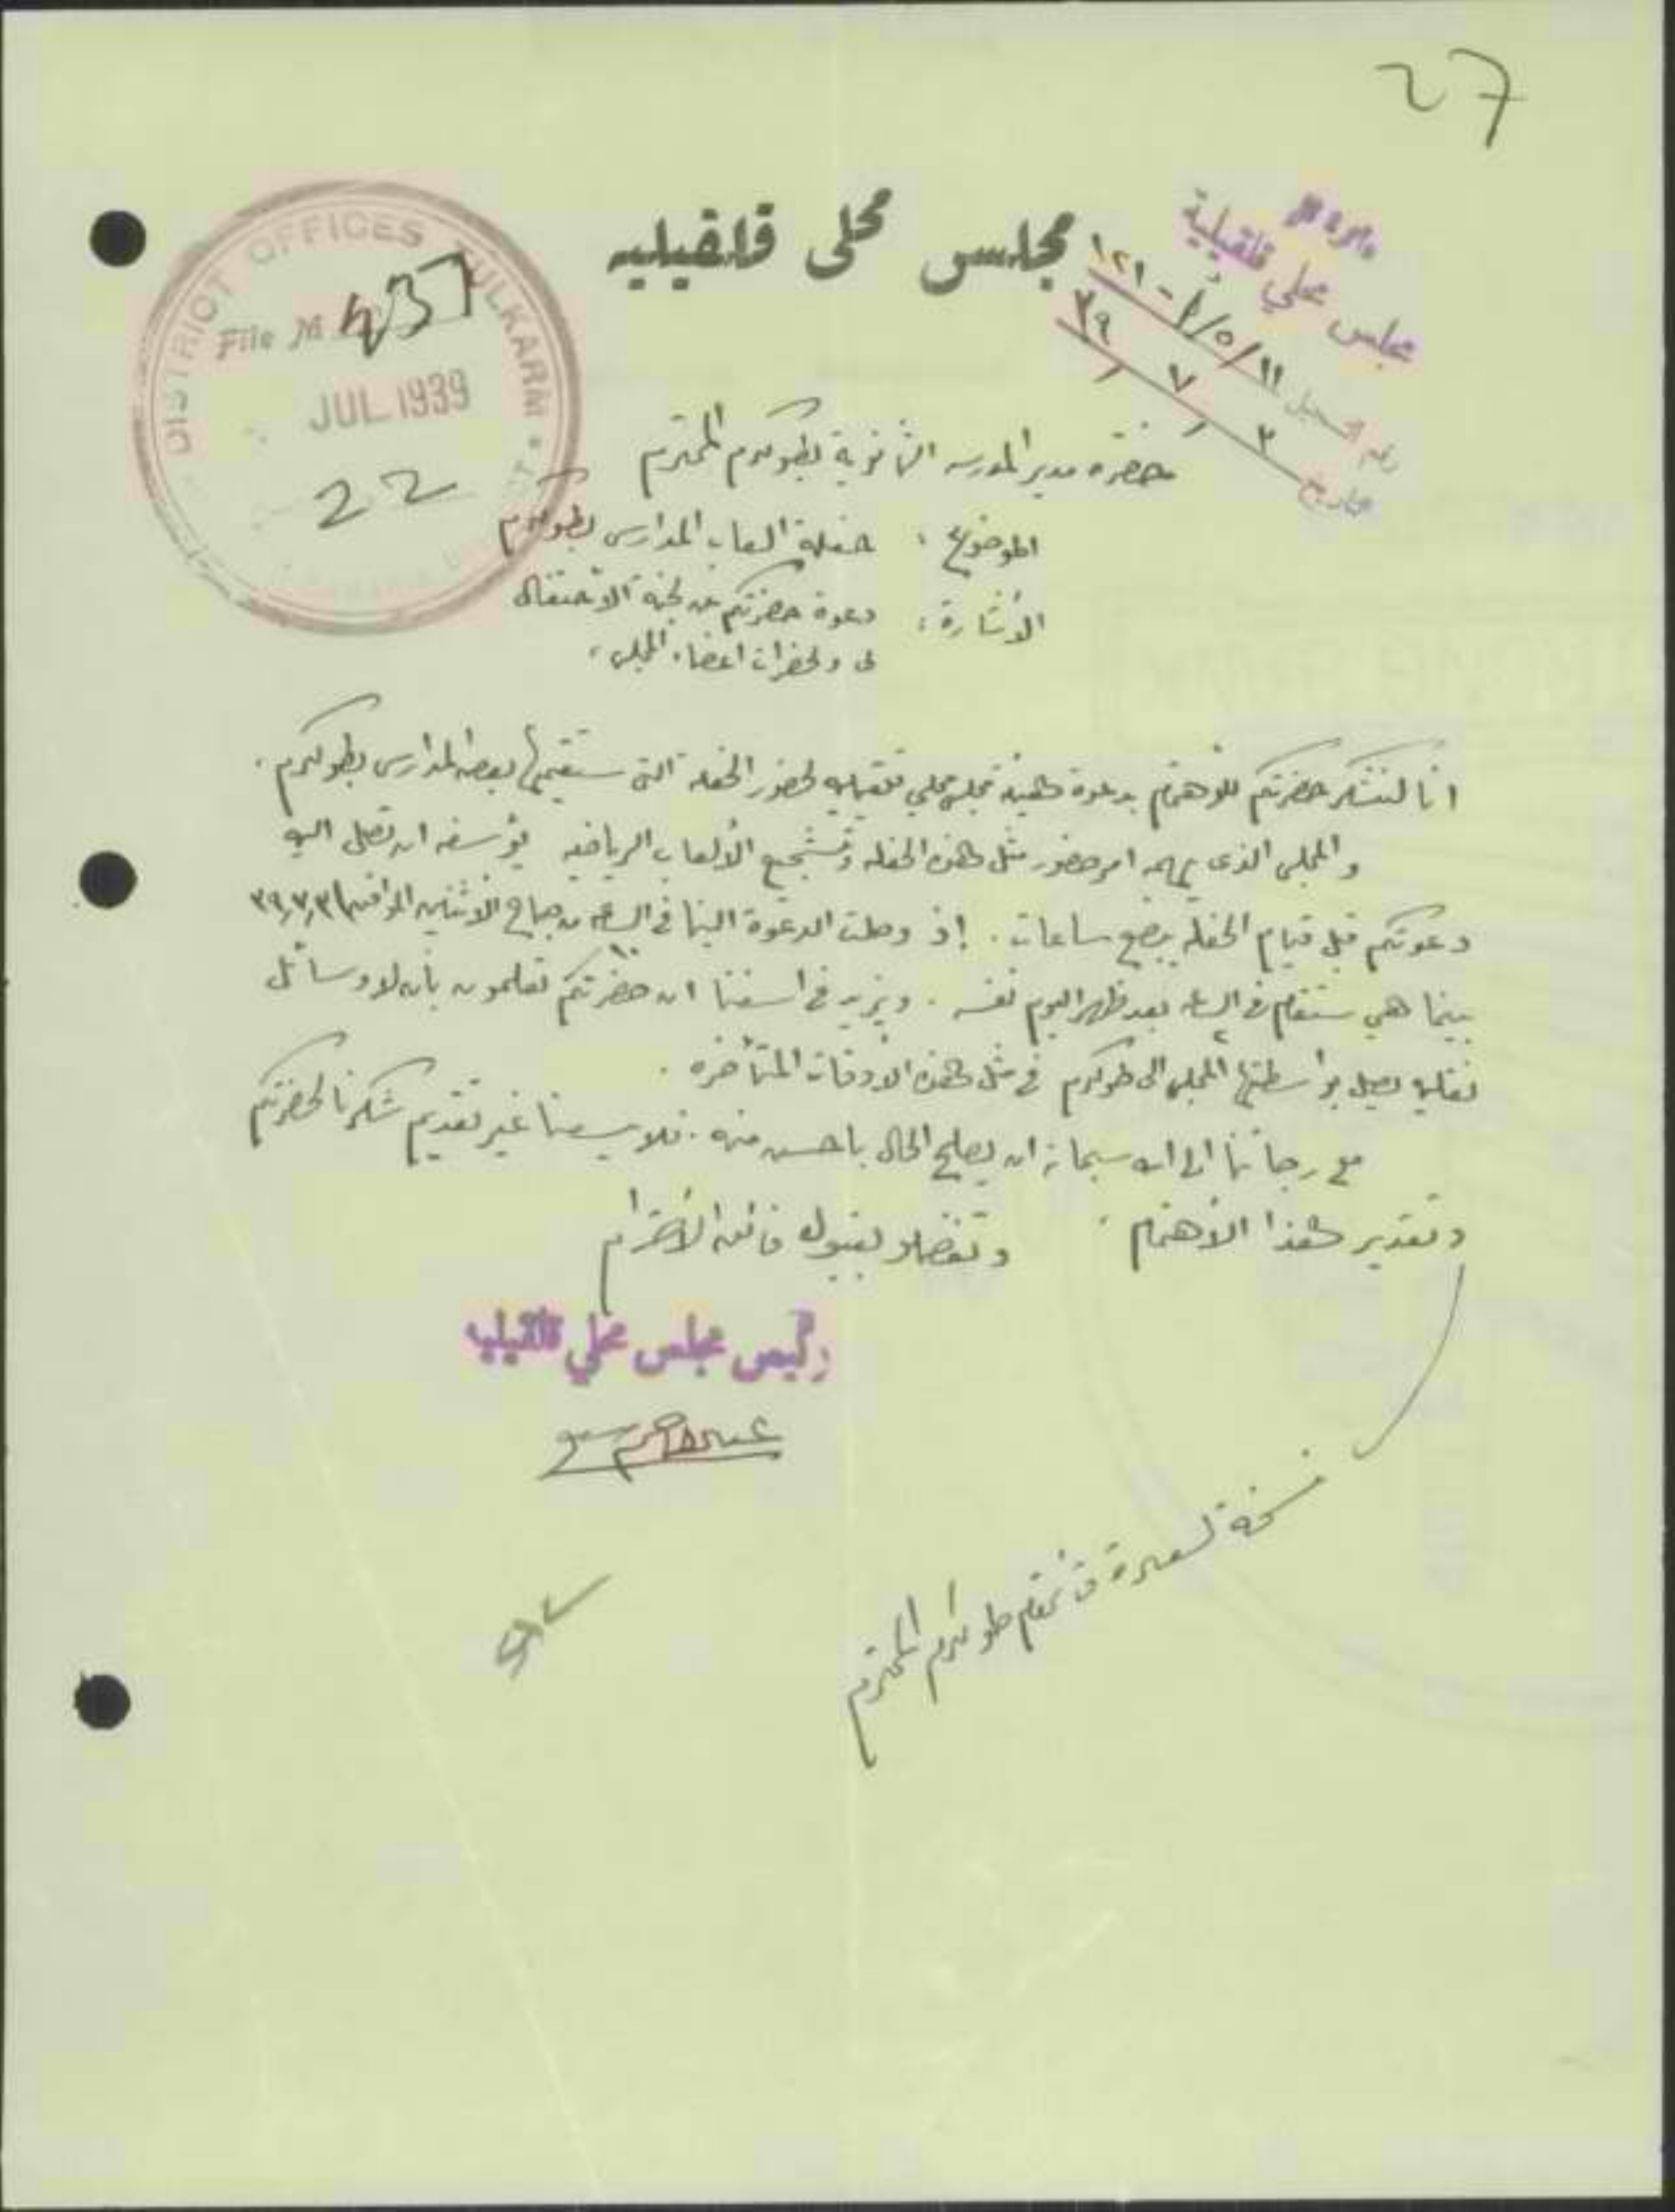 27
مجلس محلى قلقيليه
مجلس محلي قلقيلية
رقم السجل ١١/٥/أ - ١٢١
تاريخ ٣ / ٧ / ٣٩
DISTRICT OFFICES TULKARM
File № 4/37
JUL 1939
22
حضرة مدير المدرسه الثانوية بطولكرم المحترم
الموضوع : حفلة العاب المدارس بطولكرم
الأشارة : دعوة حضرتكم عن لجنة الأحتفال
لى ولحضرات اعضاء المجلس ،
انا لنشكر حضرتكم للأهتمام بدعوة هيئة مجلس محلي قلقيليه لحضور الحفلة التى ستقيمها بعض المدارس بطولكرم .
والمجلس الذى يهمه امر حضور مثل هذه الحفله وتشجيع الألعاب الرياضيه يؤسفه ان تصل اليه
دعوتكم قبل قيام الحفله ببضع ساعات . إذ وصلت الدعوة الينا في الساعه من صباح الأثنين الموافق ٣٩/٧/٣
بينما هي ستقام في الساعه ٢ بعد ظهر اليوم نفسه . ويزيد في اسفنا ان حضرتكم تعلمون بأن لا وسائل
نقليه يصل بواسطتها المجلس الى طولكرم في مثل هذه الأوقات المتأخره .
مع رجائنا الى الله سبحانه ان يصلح الحال باحسن منه . فلا يسعنا غير تقديم شكرنا لحضرتكم
وتقدير هذا الأهتمام ، وتفضلو بقبول فائق الأحترام
رئيس مجلس محلي قلقيليه
نسخة لسعادة قائمقام طولكرم المحترم